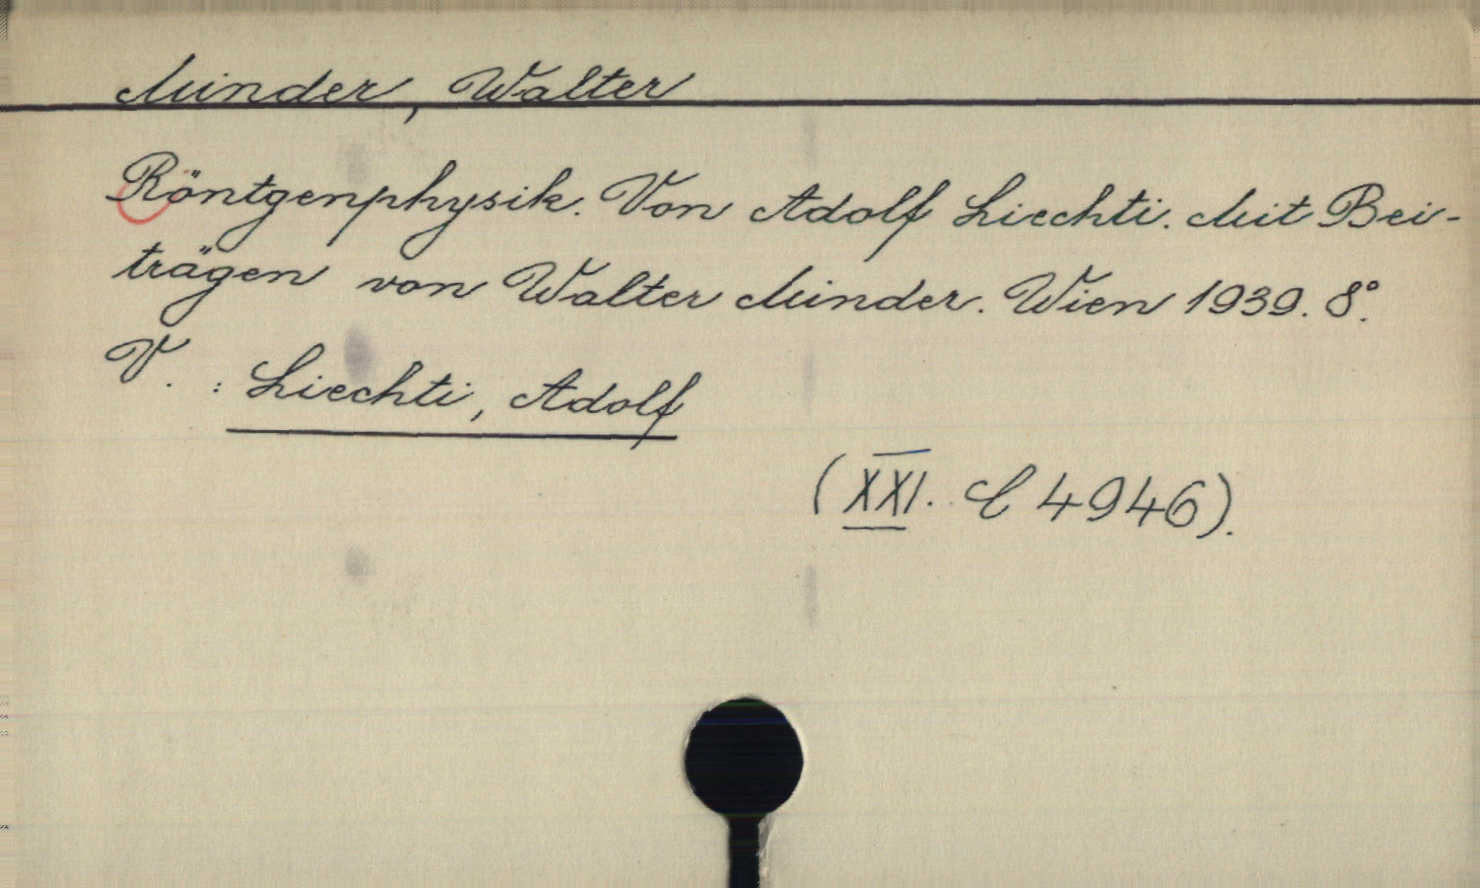 Minder, Walter
Röntgenphysik. Von Adolf Liechti. Mit Bei-
trägen von Walter Minder. Wien 1939. 8°.
V. : Liechti, Adolf
(XXI. C 4946).